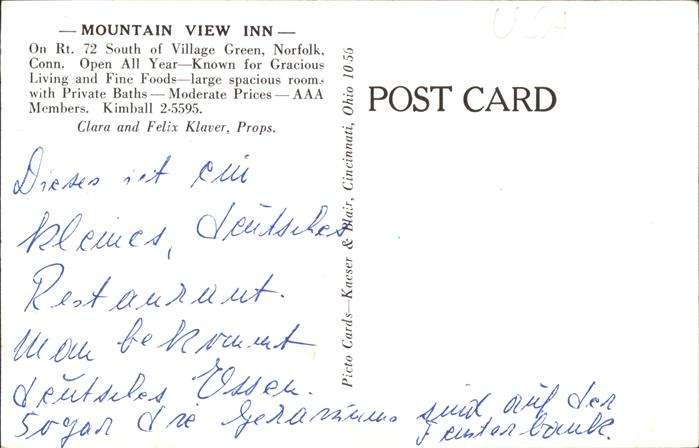 USA
— MOUNTAIN VIEW INN —
On Rt. 72 South of Village Green, Norfolk,
Conn. Open All Year—Known for Gracious
Living and Fine Foods—large spacious rooms
with Private Baths — Moderate Prices — AAA
Members. Kimball 2-5595.
Clara and Felix Klaver, Props.
Picto Cards—Kaeser & Blair, Cincinnati, Ohio 10-56
POST CARD
Dieses ist ein
kleines, deutsches
Restaurant.
Man bekommt
deutsches Essen.
Sogar die Geraniums sind auf der
Fensterbank.